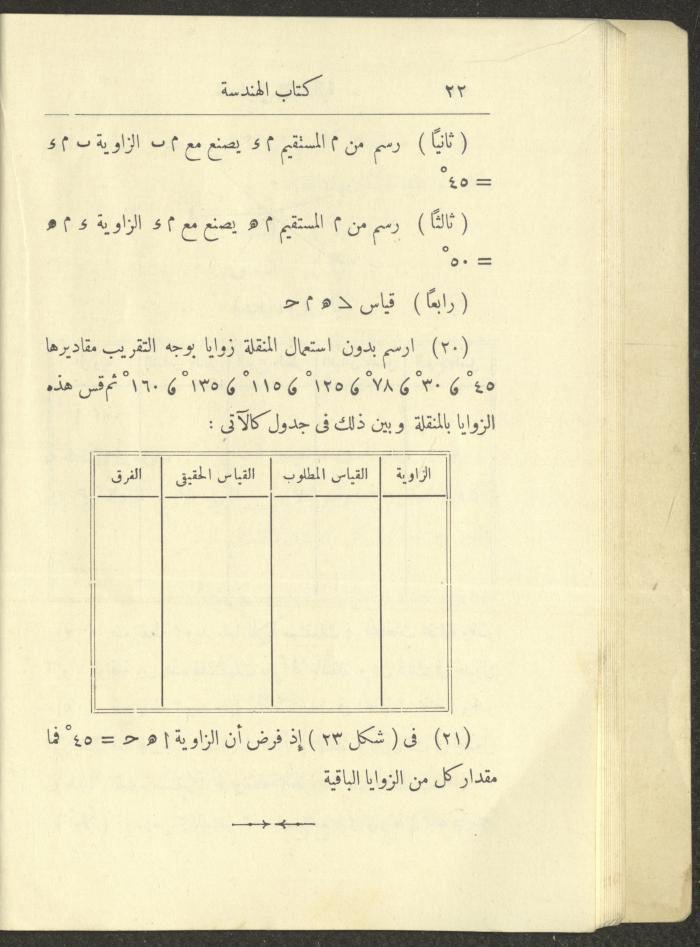 ٢٢ كتاب الهندسة
( ثانيًا ) رسم من م المستقيم م ء يصنع مع م ب الزاوية ب م ء
= ٤٥°
( ثالثًا ) رسم من م المستقيم م ه يصنع مع م ء الزاوية ء م ه
= ٥٠°
( رابعًا ) قياس > ه م ح
(٢٠) ارسم بدون استعمال المنقلة زوايا بوجه التقريب مقاديرها
٤٥° ٫ ٣٠° ٫ ٧٨° ٫ ١٢٥° ٫ ١١٥° ٫ ١٣٥° ٫ ١٦٠° ثم قس هذه
الزوايا بالمنقلة وبين ذلك فى جدول كالآتى :
الزاوية القياس المطلوب القياس الحقيقى الفرق
(٢١) فى ( شكل ٢٣ ) إذ فرض أن الزاوية ا ه ح = ٤٥° فما
مقدار كل من الزوايا الباقية